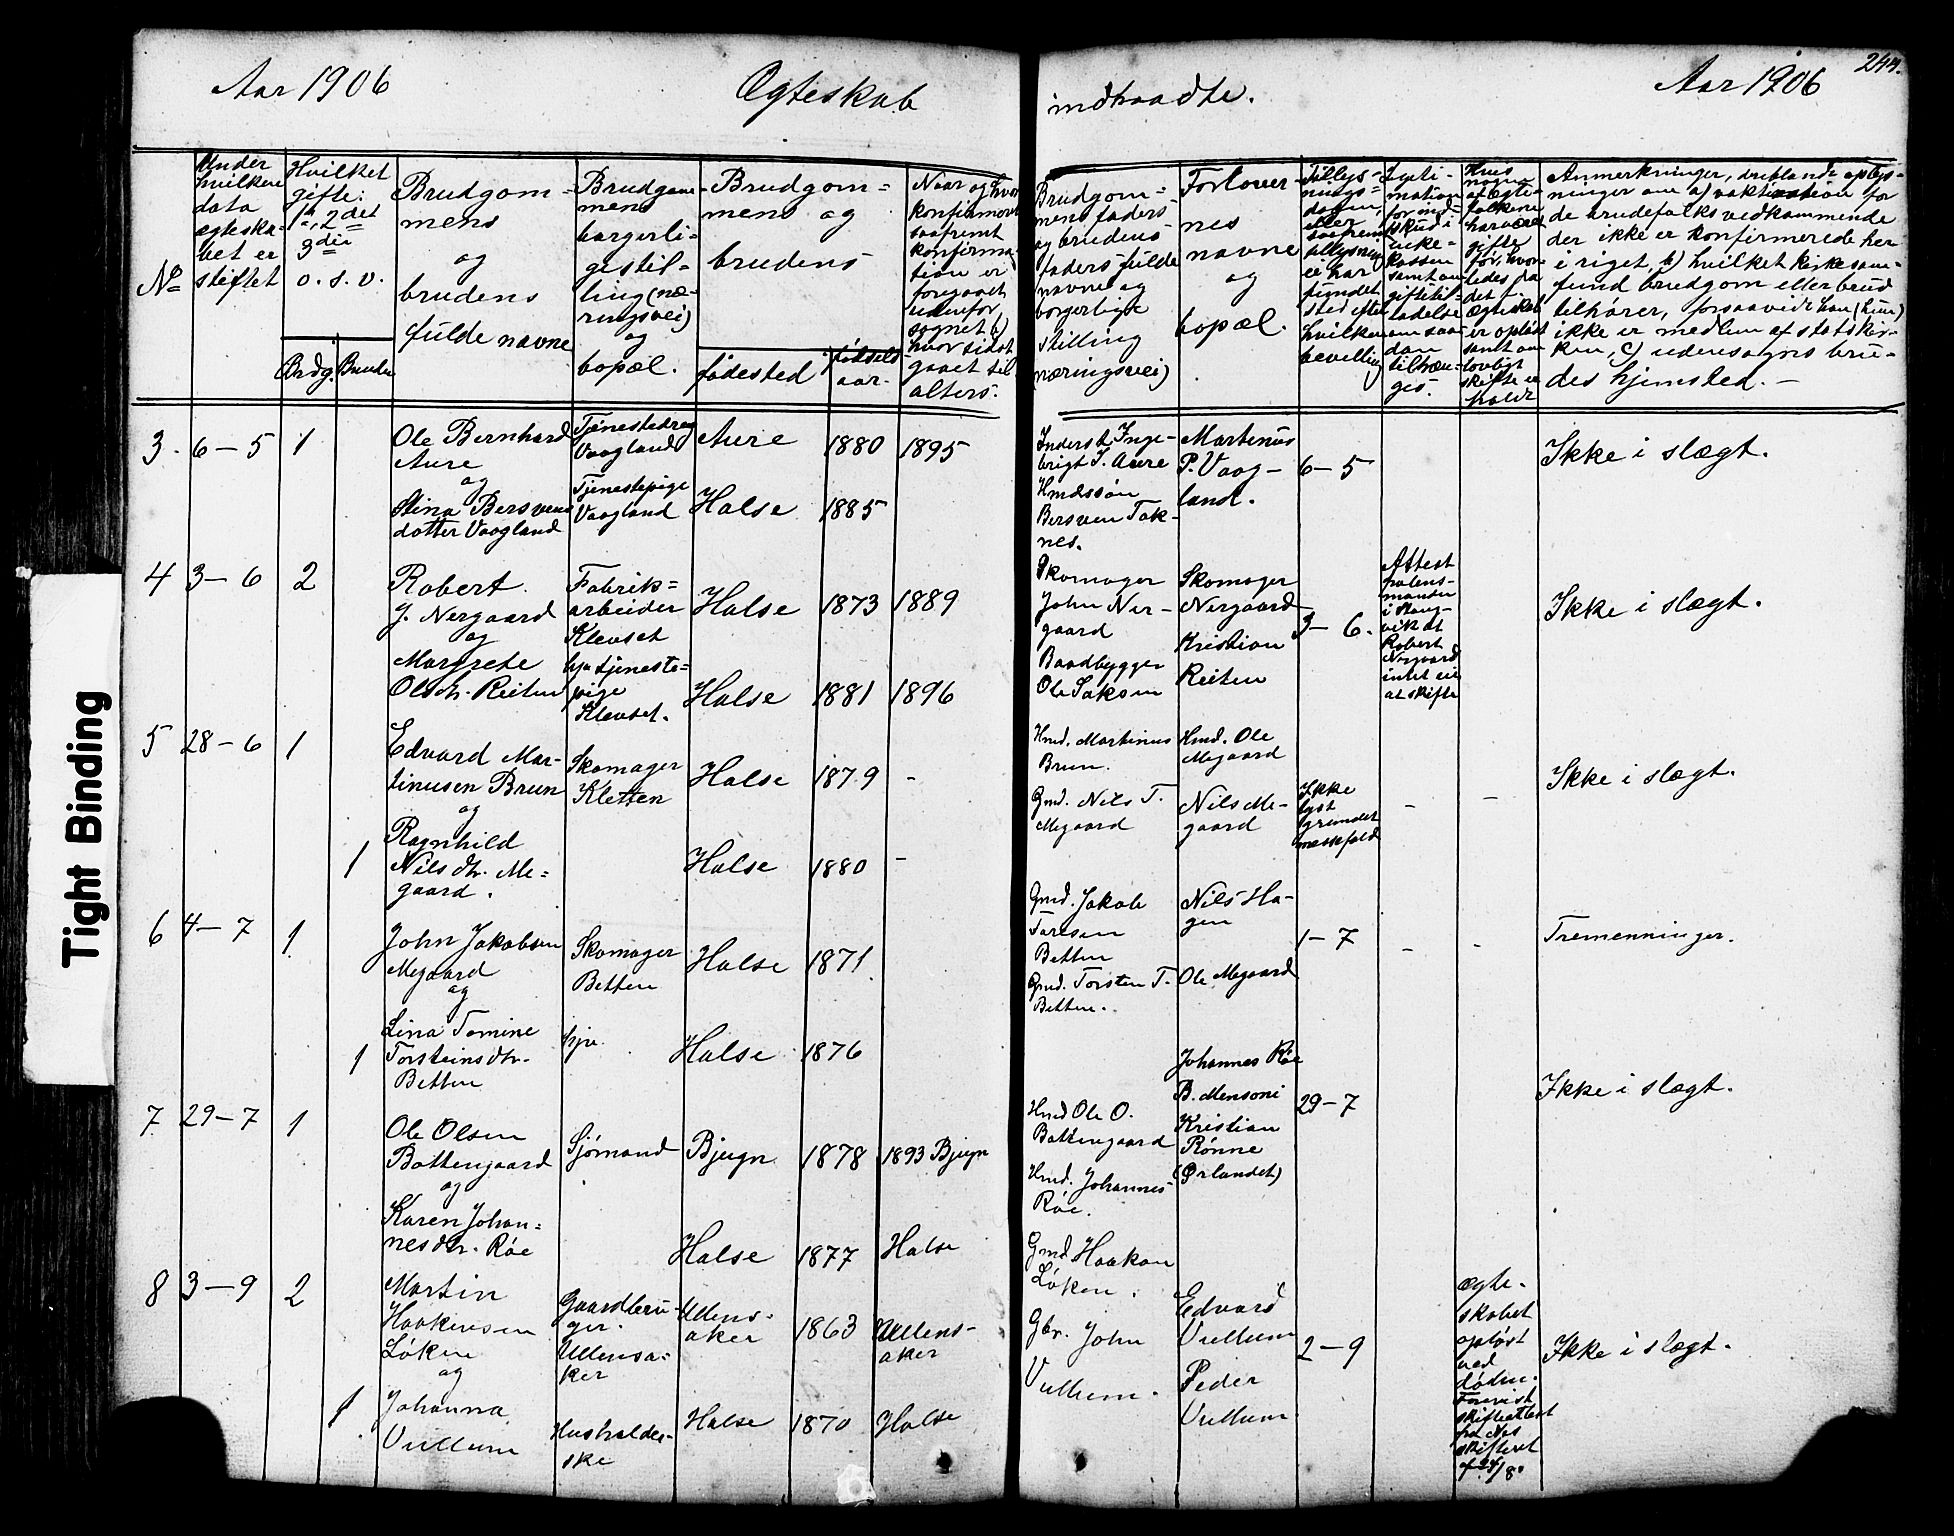 Aar 1906
Ægteskab
indtraadte.
Aar 1906
244.
Tight Binding
No
Under
hvilken
data
ægteska-
bet er
stiftet
Hvilket
gifte:
1ste, 2det
3die
o. s. v.
Brdg.
Brude
Brudgom=
mens
og
brudens
fulde navne
Brudgom-
mens
borgerli-
ge stil-
ling (næ-
ringsvei)
og
bopæl.
Brudgom=
mens og
brudens
fødested
fødsels-
aar.
Naar og hvor
konfirmeret
saafremt
konfirma-
tion er
foregaaet
udenfor
sognet b)
hvor sidst
gaaet til
alters.
Brudgom=
mens faders
og brudens
faders fulde
navne og
borgerlige
stilling
næringsvei)
Forlover-
nes
navne
og
bopæl.
Tillys-
nings=
dagen,
eller
saafremt
tillysning
ei har
fundet
sted efter
hvilken
bevilling
Legiti-
mation
for ind-
skud i
enke-
kassen
samt om
giftetil-
ladelse
om saa-
dan
tilhæn-
ges.
Hvis
nogen
af ægte-
folkene
har været
gifte
før, hvor-
ledes da
det
ægteskab
er opløst
samt om
lovligt
skifte er
holdt
Anmerkninger, deriblandt oplys-
ninger om a) vaktination for
de brudefolks vedkommende
der ikke er konfirmerede her
i riget, b) hvilket kirkesam-
fund brudgom eller brud
tilhører, forsaavidt han (hun)
ikke er medlem af statskir-
ken, c) udensogns bru-
des hjemsted. -
3. 6-5 1
Ole Bernhard
Aure
og
Stina Bersven
datter Vaagland
Tjenestedreng
Vaagland
Tjenestepige
Vaagland
Aure 1880 1895
Halse 1885
Inderst Inge-
brigt I. Aure
Gmdssøn
Bersven Tak-
nes.
Martinus
P. Vaag-
land.
6-5
Ikke i slægt.
4 3-6 2
Robert
J. Nergaard
og
Margrete
Olsdtr. Reiten
Fabrik=
arbeider
Klevset
hjv tjeneste=
pige
Klevset.
Halse 1873 1889
Halse 1881 1896
Skomager
John Ner-
gaard
Baadbygger
Ole Saksen
Skomager
Nergaard
Kristian
Reiten
3-6.
Attest
fra lens-
manden
i Stang-
vik at
Robert
Nergaard
intet eie
at skifte
Ikke i slægt.
5 28-6 1
Edvard Mar-
tinusen Brun
og
1 Ragnhild
Nilsdtr. Me=
gaard.
Skomager
Kletten
Halse 1879 -
Halse 1880 -
Hmd. Martinus
Brun.
Gmd. Nils T.
Megaard
Hmd. Ole
Megaard
Nils Me-
gaard
Ikke
lyst
grundet
messefald
- -
Ikke i slægt.
6 4-7 1
John Jakobsen
Megaard
og
1 Lina Tomine
Torsteinsdtr.
Betten
Skomager
Betten
hjv.
Halse 1871
Halse 1876
Gmd. Jakob
Torsen
Betten
Gmd. Torsten T.
Betten.
Nils Ha-
gen
Ole Megaard
1-7
- -
Tremenninger.
7 29-7 1
Ole Olsen
Battengaard
og
Karen Johan=
nesdtr. Røe
Sjømand
Bjugn 1878 1893 Bjugn
Halse 1877 Halse
Hmd Ole O.
Battengaard
Hmd. Johannes
Røe.
Johannes Røe
B. Mensoni
Kristian
Rønne
(Ørlandet)
29-7
Ikke i slægt.
8 3-9 2
Martin
Haakensen
Løken
og
1 Johanna
Vullum
Gaardbru-
ger.
Ullensa-
ker
Husholder-
ske
Ullens-
aker 1863 Ullens-
aker
Halse 1870 Halse
Gmd Haakon
Løken.
Gbr. John
Vullum.
Edvard
Vullum
Peder
Vullum
2-9
Ægte-
skabet
opløst
ved
døden.
Forevist
skifteattest
fra Nes
skifteret
af 24/8.
Ikke i slægt.